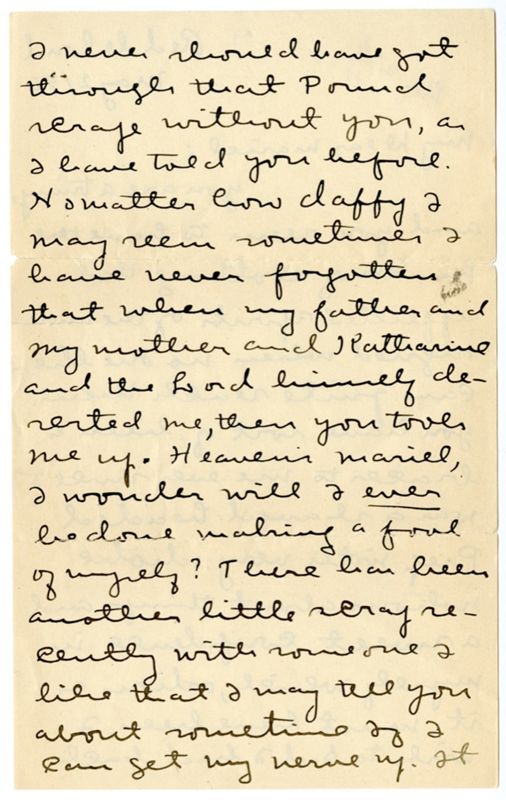 I never should have got
through that Pound
scrape without you, as
I have told you before.
No matter how daffy I
may seem sometimes I
have never forgotten
that when my father and
my mother and Katharine
and the Lord himself de-
serted me, then you took
me up. Heavens Mariel,
I wonder will I ever
be done making a fool
of myself? There has been
another little scrap re-
cently with someone I
like that I may tell you
about sometime if I
can get my nerve up. It